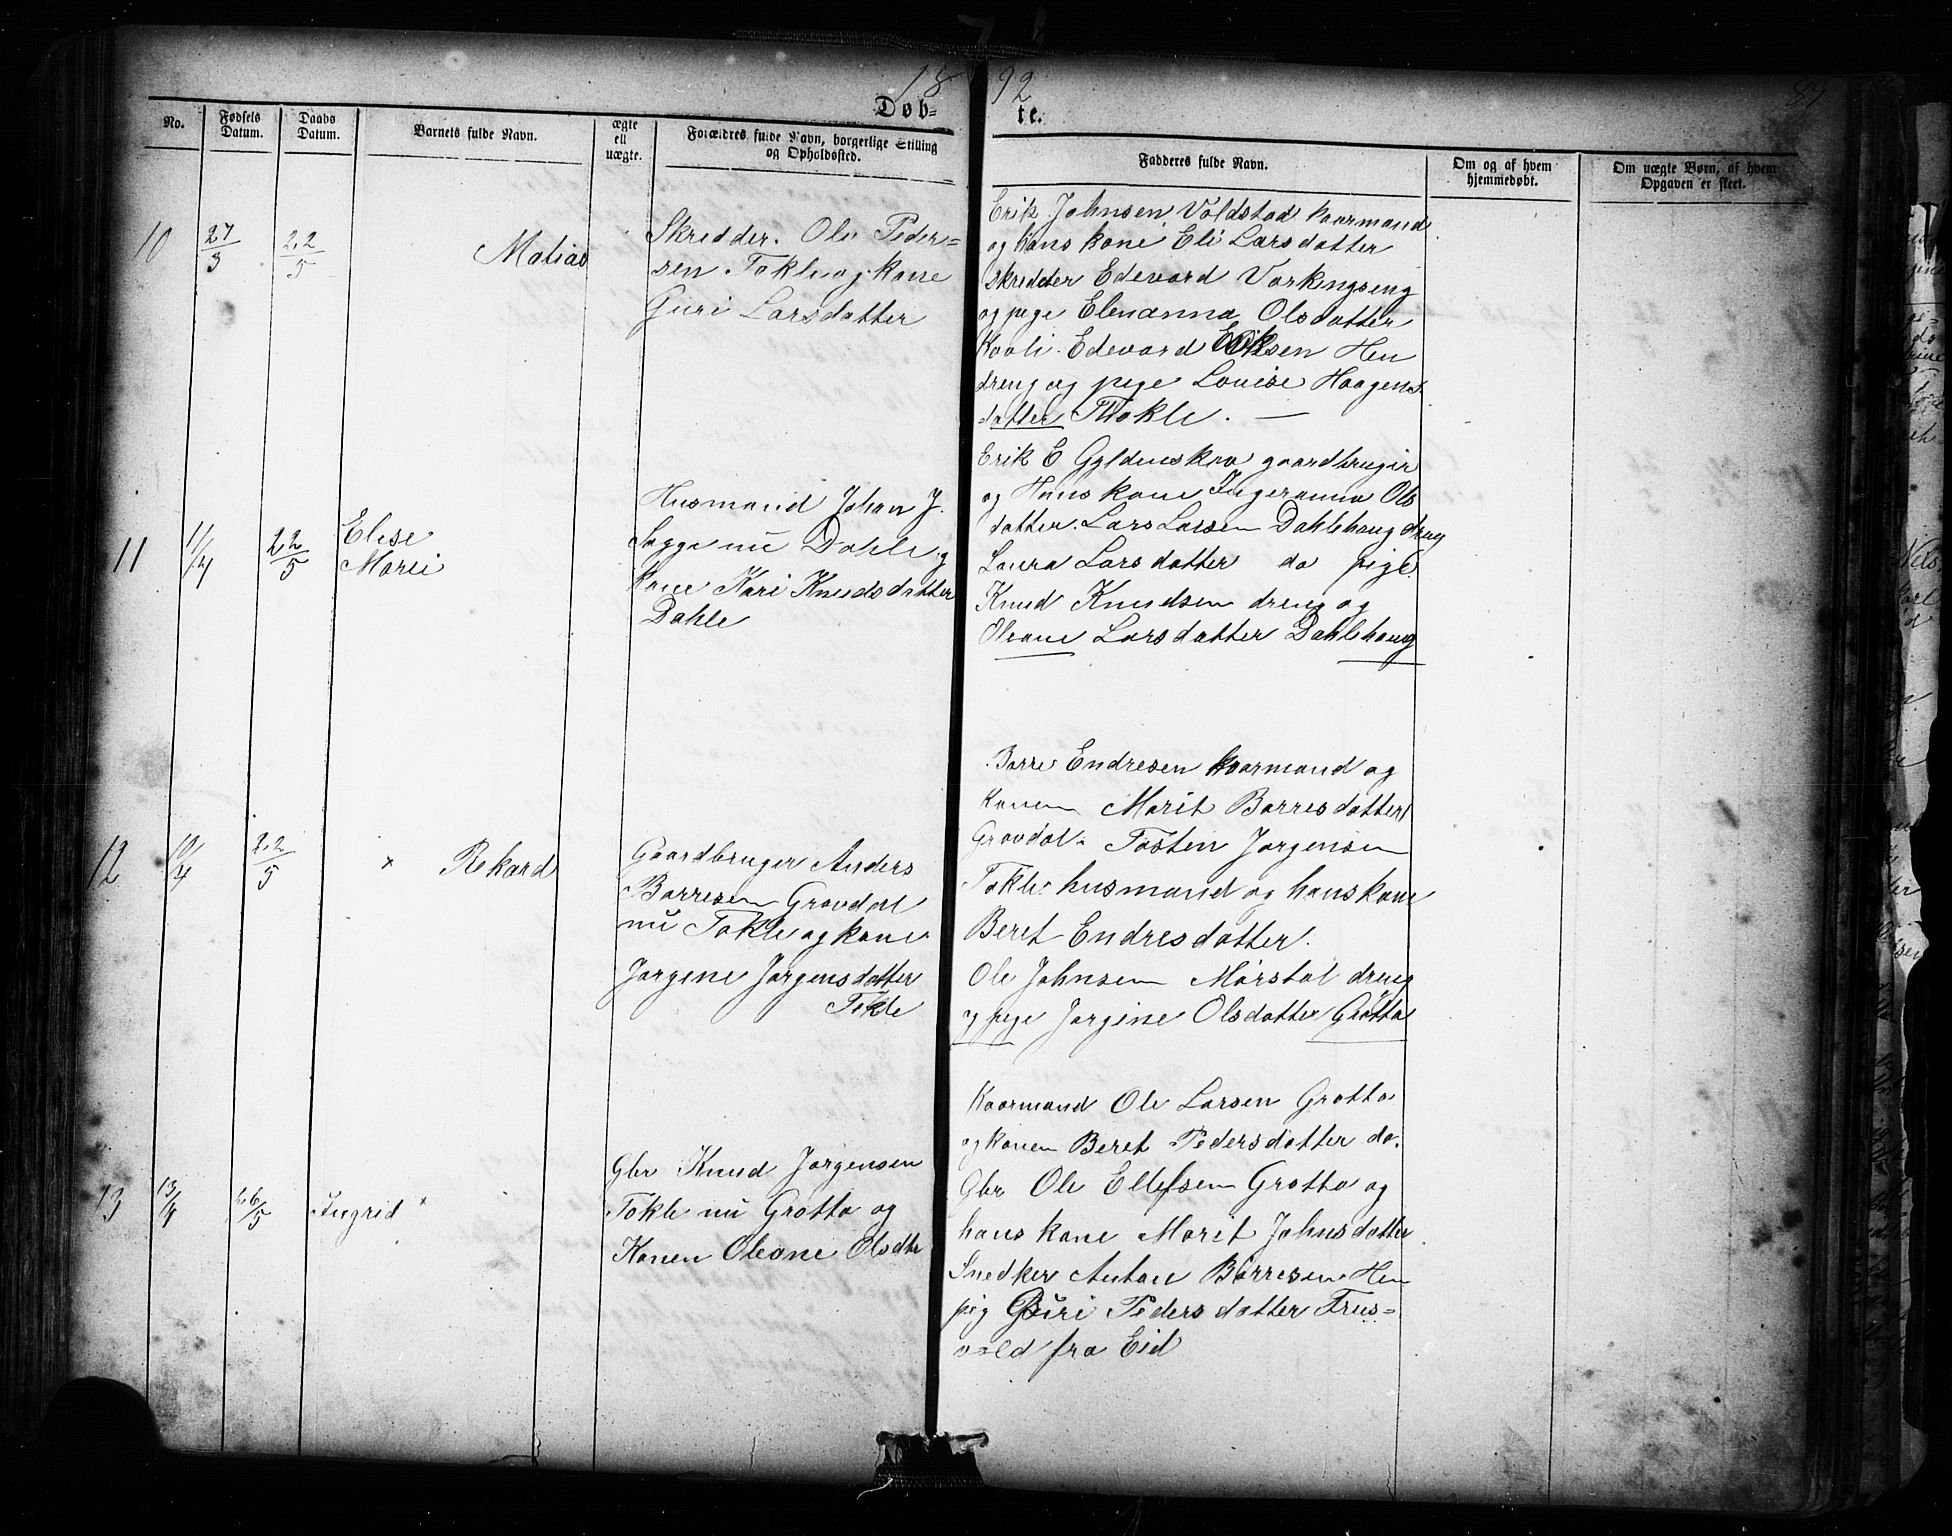 18 92
Døb= te.
89
No.
Fødsels Datum.
Daabs Datum.
Barnets fulde Navn.
ægte ell uægte.
Forældres fulde Navn, borgerlige Stilling og Opholdssted.
Fadderes fulde Navn.
Om og af hvem hjemmedøbt.
Om uægte Børn, af hvem Opgaven er skeet.
10
27/3
22/5
Matias
Skredder. Ole Peder=
sen. Tokle og kone
Guri Larsdatter
Erik Johnsen Voldstad kaarmand
og hans kone Eli Larsdatter
skredder Edevard Vorkingseng
og pige Elenanna Olsdatter
Edevard Eriksen Hen
dreng og pige Louise Haagens
datter Tokle. —
11
11/4
22/5
Elise
Marie
Husmand Johan J.
Sogge nu Dahle og
kone Kari Knudsdatter
Dahle
Erik E Gyldenskov gaardbruger
og Hans kone Ingeranna Ols
datter. Lars Larsen Dahlehaug dreng
Laura Larsdatter do pige
Knud Knudsen dreng og
Oleane Larsdatter Dahlehaug
12
10/4
22/5
× Rekard
Gaardbruger Anders
Borresen Grovdal
nu Tokle og kone
Jorgine Jorgensdatter
Tokle
Borre Endresen kaarmand og
Konen Marit Borresdatter
Grovdal. Tosten Jorgensen
Tokle husmand og hans kone
Beret Endresdatter.
Ole Johnsen Morstol dreng
og pige Jorgine Olsdatter Grøtta
13
13/4
26/5
Ingrid ×
Gbr Knud Jorgensen
Tokle nu Grotta og
Konen Oleane Olsdtr
Kaarmand Ole Larsen Grotta
og konen Beret Pedersdatter do.
Gbr Ole Ellefsen Grotta og
hans kone Marit Johnsdatter
Snedker Anton Børresen Hen
pig Guri Pedersdatter Trus=
vold fra Eid